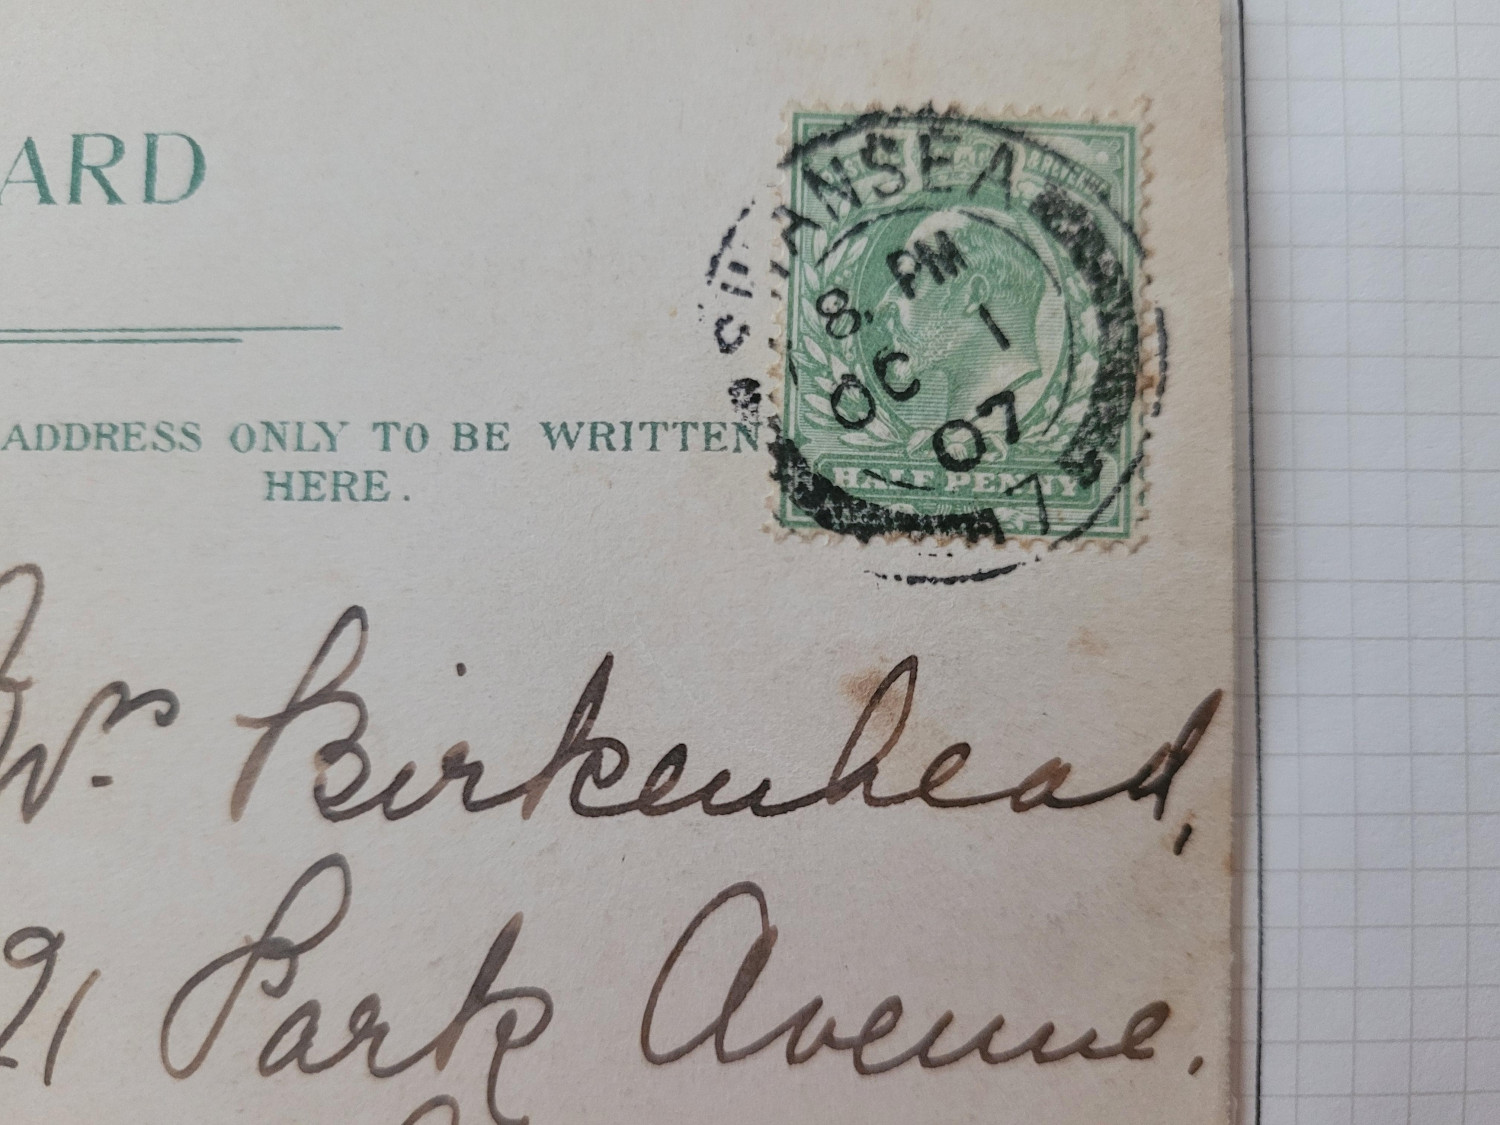 ARD
SWANSEA
8. PM
OC 1
07
HALF PENNY
ADDRESS ONLY TO BE WRITTEN
HERE.
Birkenhead,
91 Park Avenue.